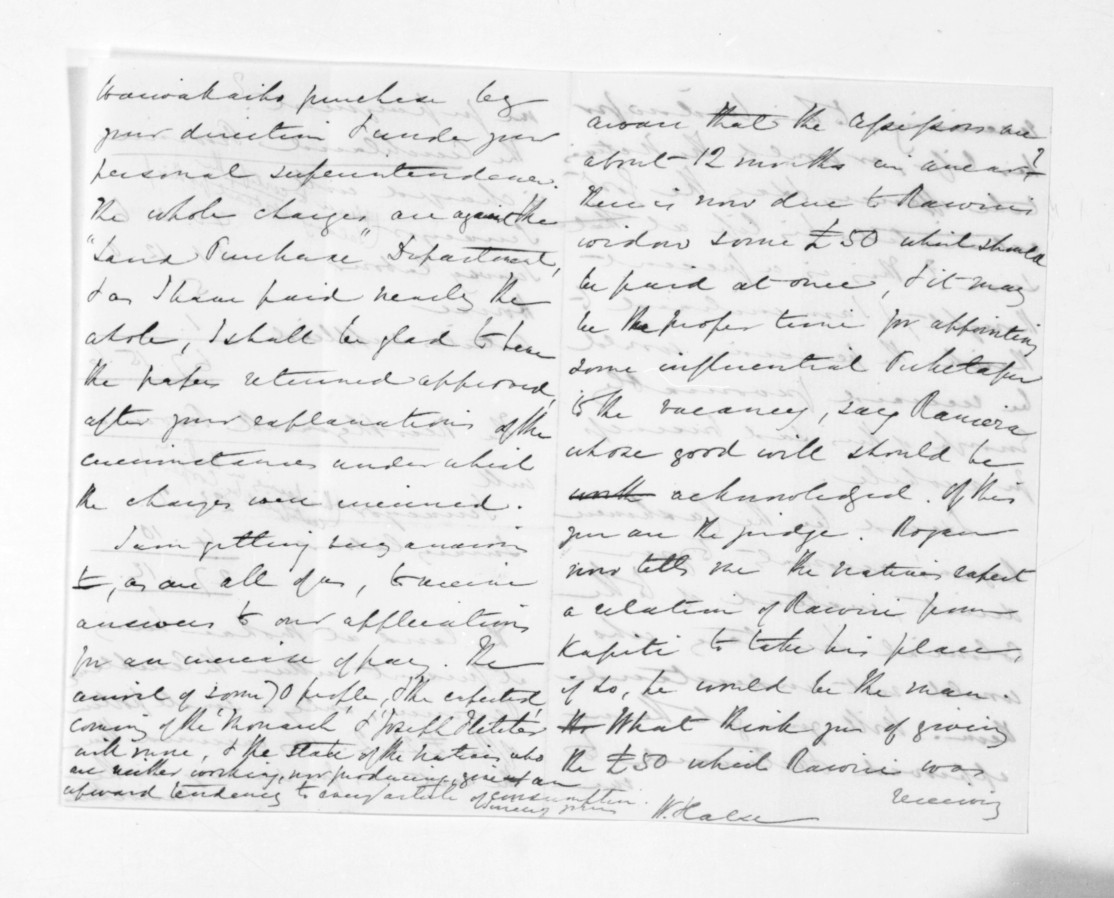 purchase by
your direction & under your
personal superintendence.
The whole charges are against the
"Land Purchase" Department,
& as I have paid nearly the
whole, I shall be glad to have
the papers returned approved,
after your explanations of the
circumstances under which
the charges were incurred.
I am getting very anxious
to, as are all of us, to receive
answers to our applications
for an increase of pay. The
arrival of some 70 people, & the expected
coming of the 'Monarch' & 'Joseph Fletcher'
with more, & the state of the natives, who
are neither working, nor producing, gives an
upward tendency to every article of consumption.
W. Halse
aware that the Assessors are
about 12 months in arear?
There is now due to Rawiri's
widow some £50 which should
be paid at once, & it may
be the proper time for appointing
some influential Puketapu
to the vacancy, say Raniera
whose good will should be
acknowledged. Of this
you are the judge. Rogan
now tells me the natives expect
a relation of Rawiri from
Kapiti to take his place,
if so, he would be the man.
What think you of giving
the £50 which Rawiri was
receiving